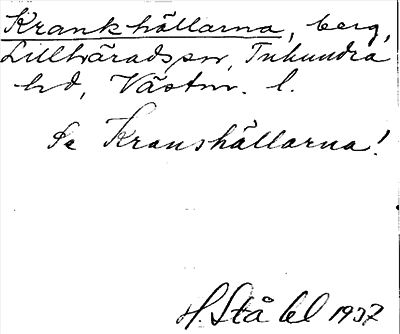 Krankhällarna, berg,
Lillhäradssn, Tuhundra
hd, Västm. l.
Se Kranshällarna!
H. Ståhl 1937